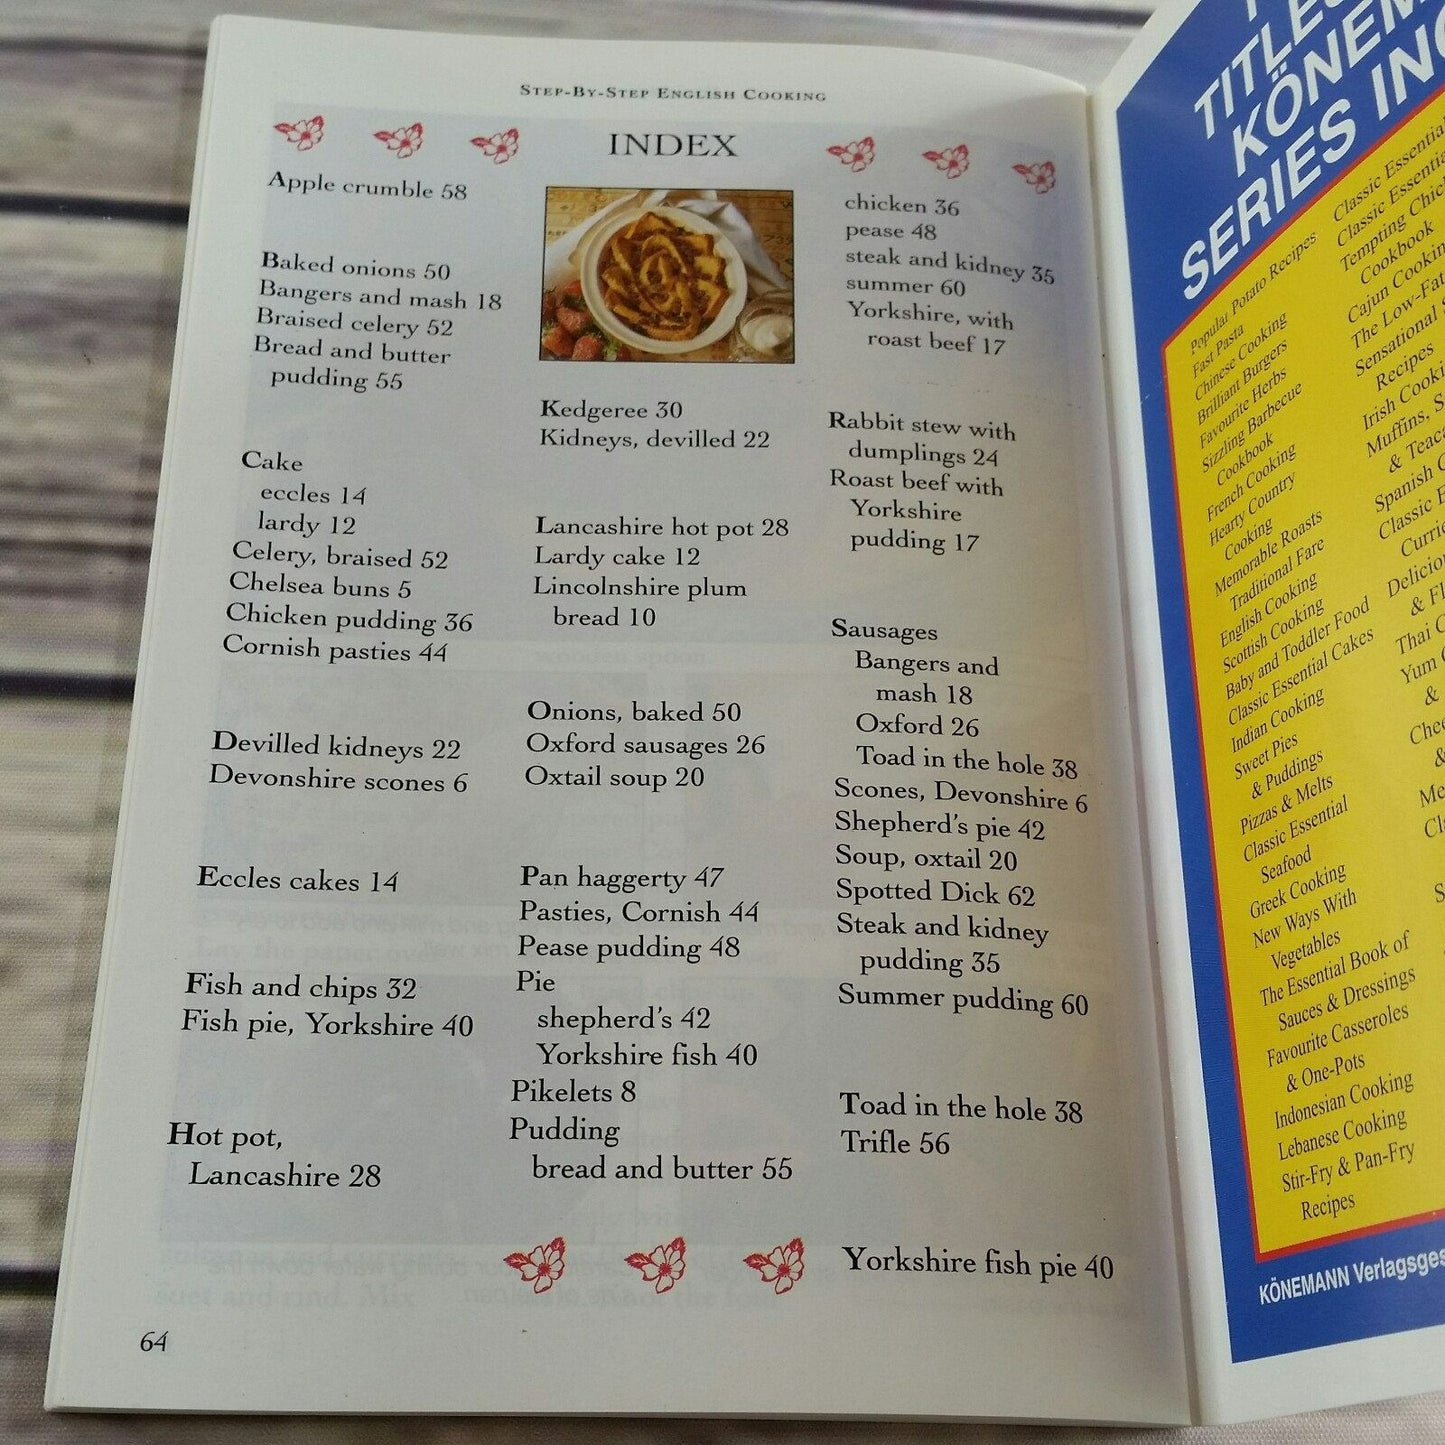 STEP-BY-STEP ENGLISH COOKING
INDEX
Apple crumble 58
Baked onions 50
Bangers and mash 18
Braised celery 52
Bread and butter
pudding 55
Cake
eccles 14
lardy 12
Celery, braised 52
Chelsea buns 5
Chicken pudding 36
Cornish pasties 44
Devilled kidneys 22
Devonshire scones 6
Eccles cakes 14
Fish and chips 32
Fish pie, Yorkshire 40
Hot pot,
Lancashire 28
Kedgeree 30
Kidneys, devilled 22
Lancashire hot pot 28
Lardy cake 12
Lincolnshire plum
bread 10
Onions, baked 50
Oxford sausages 26
Oxtail soup 20
Pan haggerty 47
Pasties, Cornish 44
Pease pudding 48
Pie
shepherd's 42
Yorkshire fish 40
Pikelets 8
Pudding
bread and butter 55
chicken 36
pease 48
steak and kidney 35
summer 60
Yorkshire, with
roast beef 17
Rabbit stew with
dumplings 24
Roast beef with
Yorkshire
pudding 17
Sausages
Bangers and
mash 18
Oxford 26
Toad in the hole 38
Scones, Devonshire 6
Shepherd's pie 42
Soup, oxtail 20
Spotted Dick 62
Steak and kidney
pudding 35
Summer pudding 60
Toad in the hole 38
Trifle 56
Yorkshire fish pie 40
64
TITLES
KÖNEM
SERIES INC
Popular Potato Recipes
Fast Pasta
Chinese Cooking
Brilliant Burgers
Favourite Herbs
Sizzling Barbecue
Cookbook
French Cooking
Hearty Country
Cooking
Memorable Roasts
Traditional Fare
English Cooking
Scottish Cooking
Baby and Toddler Food
Classic Essential Cakes
Indian Cooking
Sweet Pies
& Puddings
Pizzas & Melts
Classic Essential
Seafood
Greek Cooking
New Ways With
Vegetables
The Essential Book of
Sauces & Dressings
Favourite Casseroles
& One-Pots
Indonesian Cooking
Lebanese Cooking
Stir-Fry & Pan-Fry
Recipes
Classic Essential
Classic Essentia
Tempting Chic
Cookbook
Cajun Cookin
The Low-Fat
Sensational
Recipes
Irish Cooki
Muffins, S
& Teaca
Spanish C
Classic E
Curri
Delicio
& Fl
Thai C
Yum C
&
Chee
&
Me
Cla
S
KÖNEMANN Verlagsges